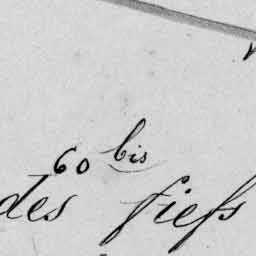 60 bis
des fiefs